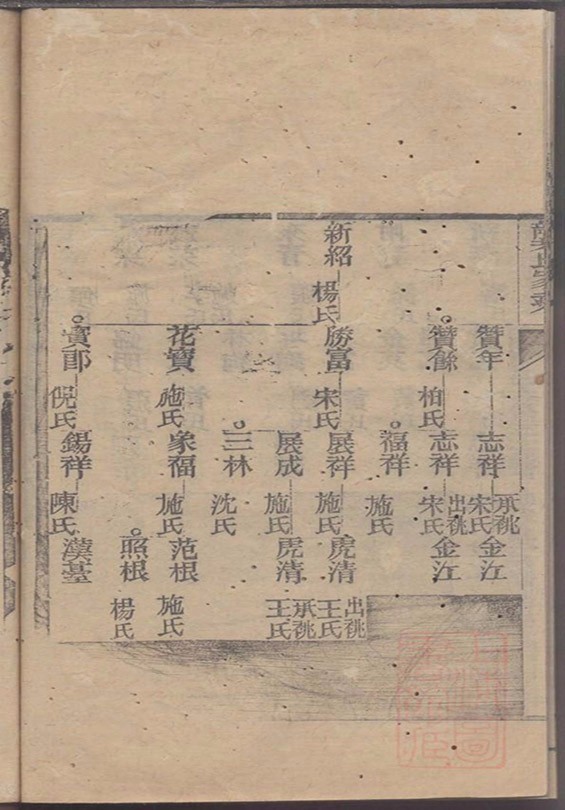 贊年
志祥
承祧
宋氏
金江
贊餘
柏氏
志祥
出祧
宋氏
金江
福祥
施氏
新紹
楊氏
勝富
宋氏
展祥
施氏
虎清
出祧
王氏
展成
施氏
虎清
承祧
王氏
三林
沈氏
花寶
施氏
象福
施氏
范根
施氏
照根
楊氏
寳郎
倪氏
錫祥
陳氏
漢基